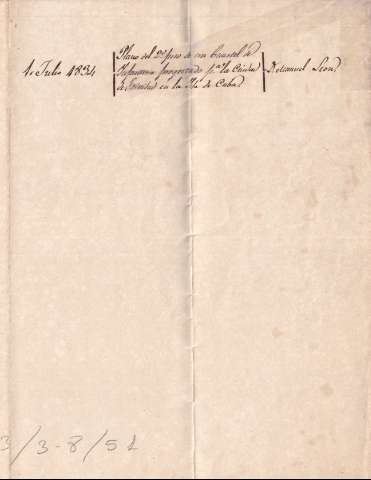 Plano del 2º piso de un Cuartel de
1º Julio 1834 Infanteria proyectado pª la Ciudad D. Manuel Leon,
de Trinidad en la Ysla de Cuba
3/3-8/51